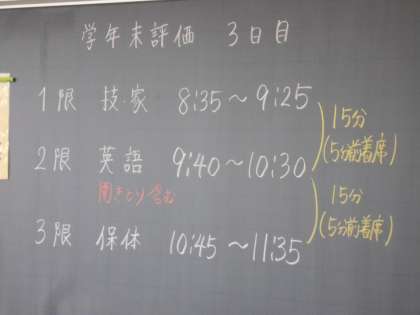 学年末評価 3日目
1限 技・家 8:35～9:25
15分
(5分前着席)
2限 英語 9:40～10:30
聞きとり含む
15分
(5分前着席)
3限 保体 10:45～11:35